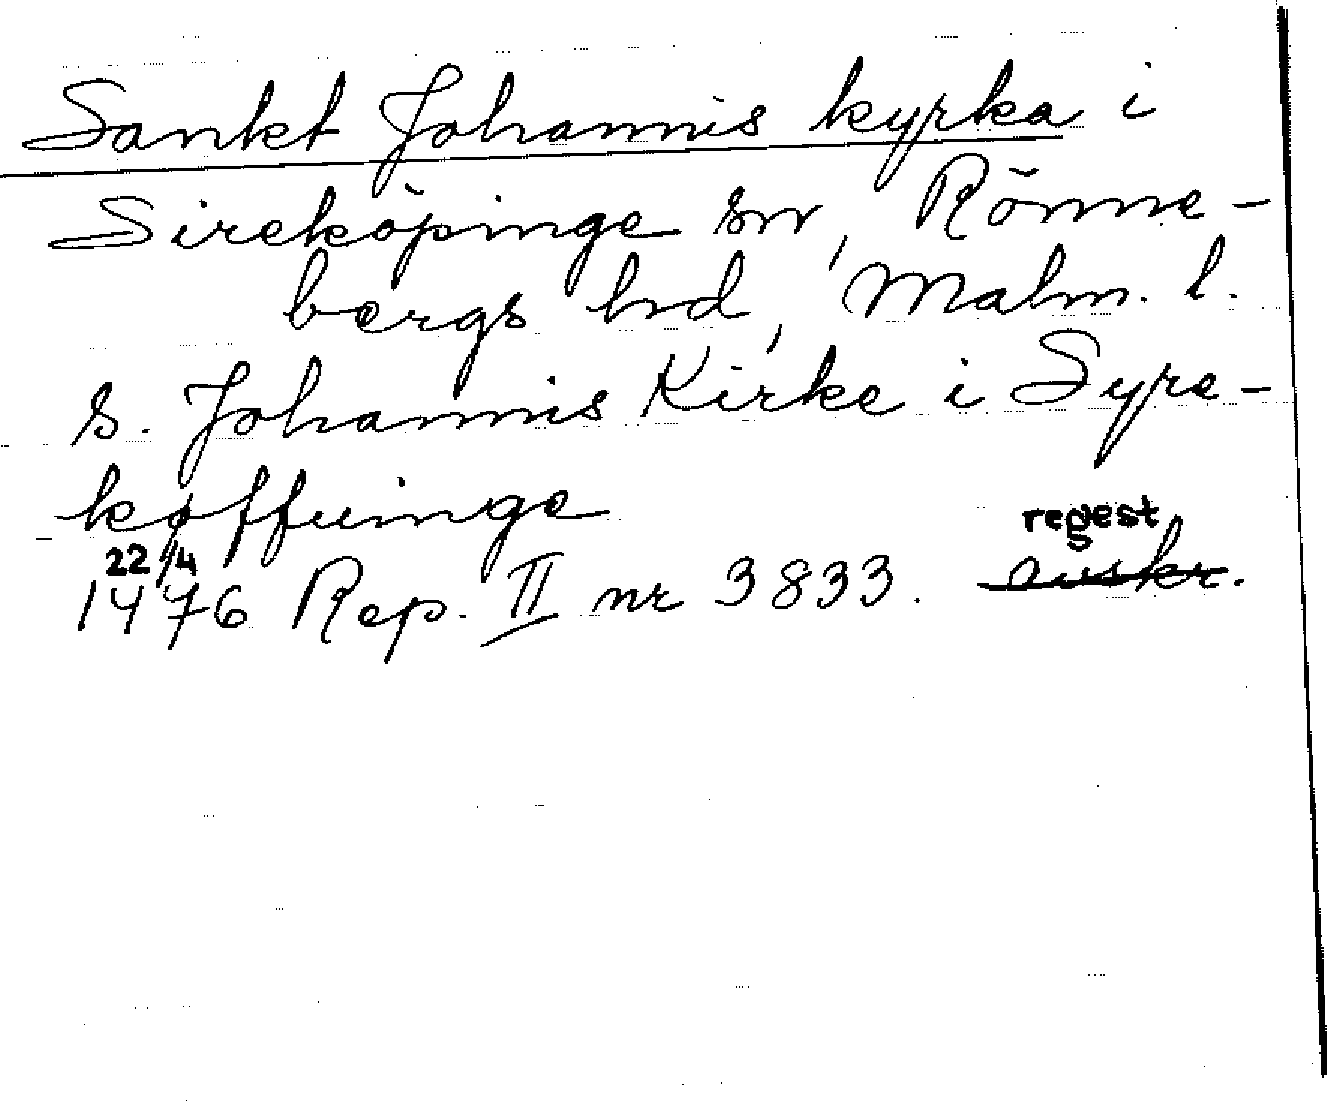 Sankt Johannis kyrka i
Sireköpinge sn, Rönne-
bergs hd, Malm. l.
S. Johannis Kirke i Syre-
køffuinge
22/4 regest
1476 Rep. II nr 3833. avskr.